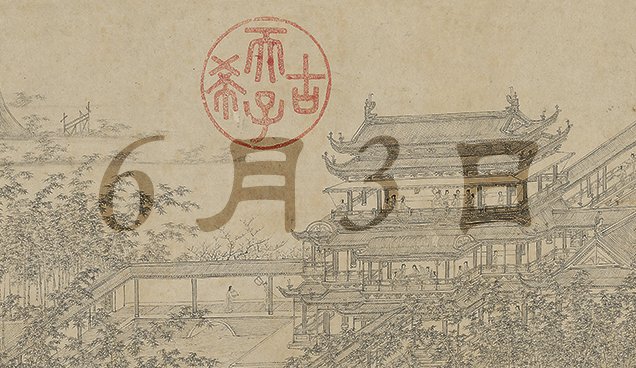 古希天子
6月3日